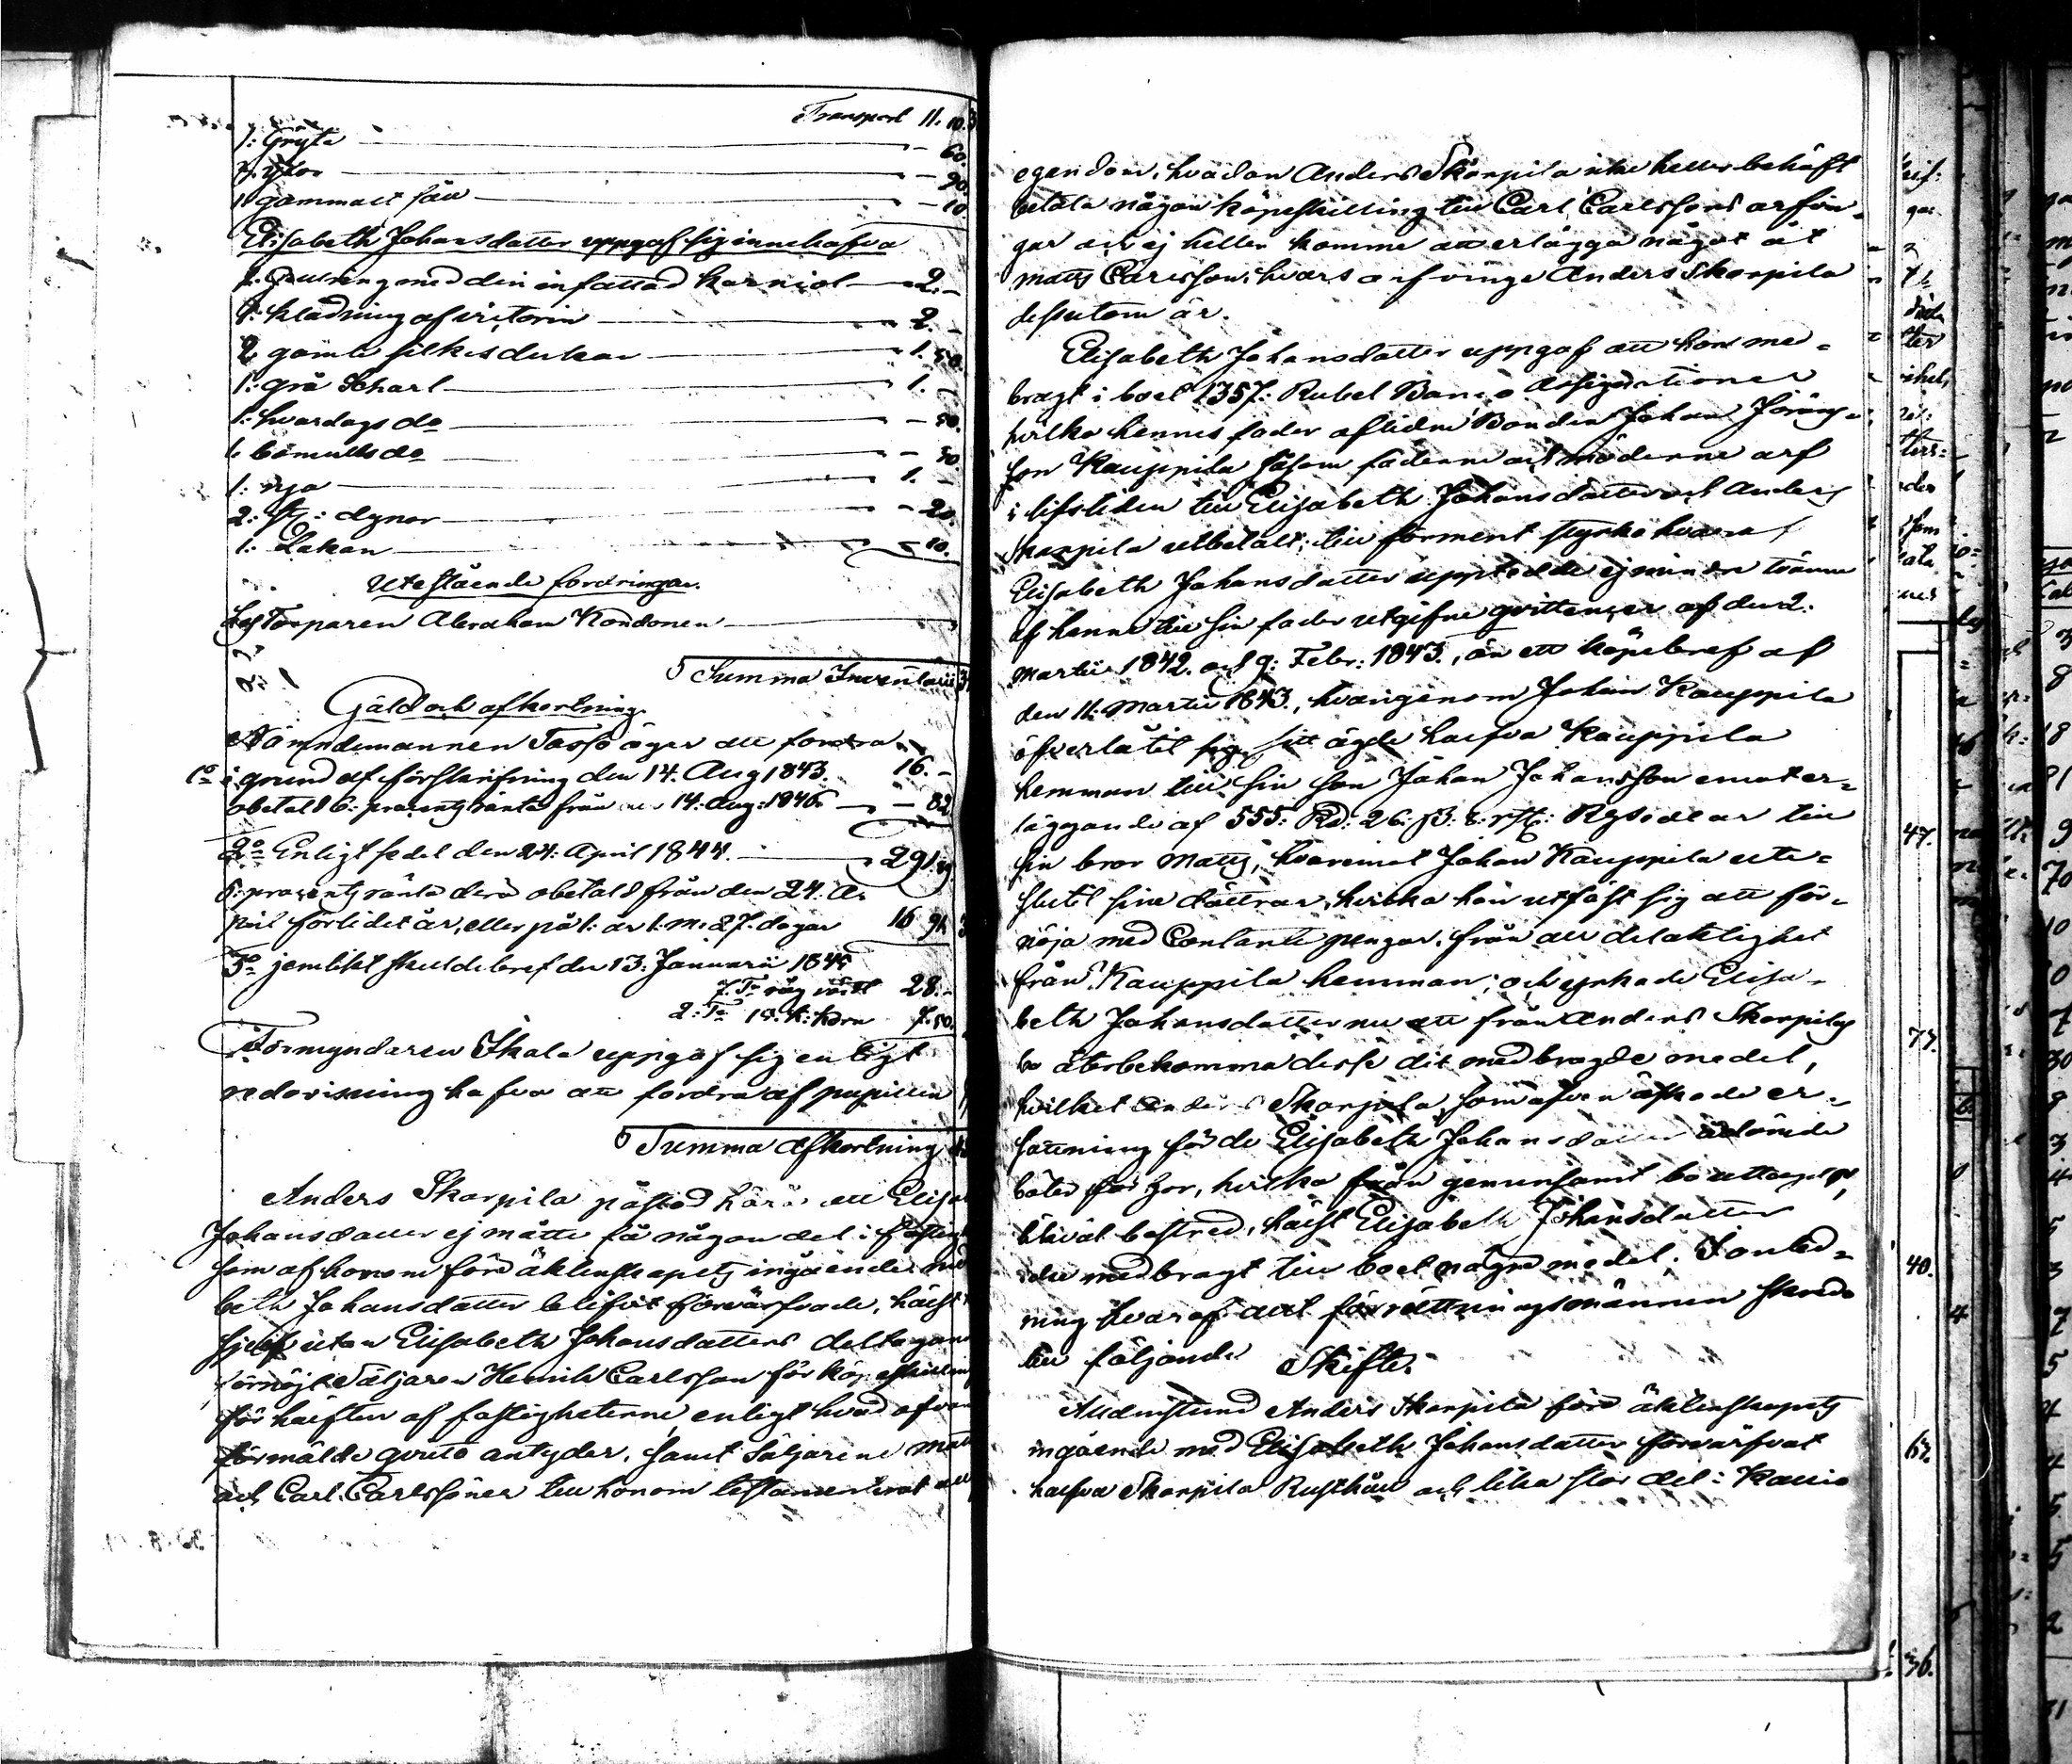 Transport 11. 10. 3
1: Gryta — 60.
2: ylor — 90.
1 gammalt fäll — 10
Elisabeth Johansdotter uppgaf sig innehafva
1. Gullring med deri infattad karniol — 2. -
1: klädning af vistorin — 2. -
2 gamla silkesdukar — 1. 50.
1: grå Scharl — 1. -
1: hvardags do — 50.
1. bomulls do — 50
1: rya — 1. -
2: st: dynor — 20.
1: Lakan — 10.
Utestående fordringar.
Torparen Abraham Kondonen
Summa Inventarii
Gäld och afkortning.
Nämndemannen Tasso äger att fordra
1o i grund af förskrifning den 14. Aug 1843. 16. -
obetald 6: procents ränta från den 14. Aug: 1846. — 82
2o Enligt sedel den 24. April 1844. — 291.
6: procents ränta derå obetald från den 24. A-
pril förlidet år, eller på 1: år 1. m. 27. dagar 16 91.
3o jemlikt skuldebref den 13: Januarii 1845
7. Ta råg värd 28. -
2: Ta 10. k: korn 7. 50.
Förmyndaren Skala uppgaf sig enligt
redovisning hafva att fordra af pupillen
Summa Afkortning
Anders Skarpila påstod härå att Elisa
Johansdotter ej måtte få någon del i fastigh
som af honom före äktenskapets ingående med
beth Johansdotter blifvit förvärfvade, hälst
sjelf utan Elisabeth Johansdotters deltagan
förnöjt Säljaren Henrik Carlsson för köpeskilling
för hälften af fastigheterne, enligt hvad ofvan
förmälde qvitto antyder, samt Säljarene Matts
och Carl Carlssöner till honom testamenterat all
egendom, hvadan Anders Skarpila icke heller behöft
betala någon köpeskilling till Carl Carlssons arfvin-
gar och ej heller komme att erlägga något åt
Matts Carlsson, hvars arfvinge Anders Skarpila
dessutom är.
Elisabeth Johansdotter uppgaf att hon med-
bragt i boet 1357: Rubel Banco Assignationer
hvilka hennes fader aflidne Bonden Johan Jöräns-
son Kauppila såsom fäderne och möderne arf
i lifstiden till Elisabeth Johansdotter och Anders
Skarpila utbetalt; till förment styrko hvaraf
Elisabeth Johansdotter uppvedde ej mindre tvänne
af henne till sin fader utgifne qvittenser af den 2.
Martii 1842. och 9: Febr: 1843., än ett köpebref af
den 11. Martii 1843., hvarigenom Johan Kauppila
öfverlåtit sitt ägde halfva Kauppila
hemman till sin son Johan Johansson emot er-
läggande af 555: Rd: 26: β: 8: rst: Rgs: dear till
sin bror Matts, hvaremot Johan Kauppila ute-
slutit sina döttrar, hvilka han utfäst sig att för-
nöja med Contante pengar, från all delaktighet
från Kauppila hemman; och yrkade Elisa-
beth Johansdotter nu att från Anders Skarpilas
bo återbekomma desse dit medbragde medel,
hvilket Anders Skarpila, som äfven äskade er-
sättning för de Elisabeth Johansdotter ådömde
böter för hor, hvilka från gemensamt bo uttagits,
likväl bestred, hälst Elisabeth Johansdotter
icke medbragt till boet några medel. I anled-
ning hvaraf allt förrättningsmännen skredo
till följande Skifte.
Alldenstund Anders Skarpila före äktenskapets
ingående med Elisabeth Johansdotter förvärfvat
halfva Skarpila Rusthåll och lika stor del i Kauio
47.
77.
40.
67.
36.